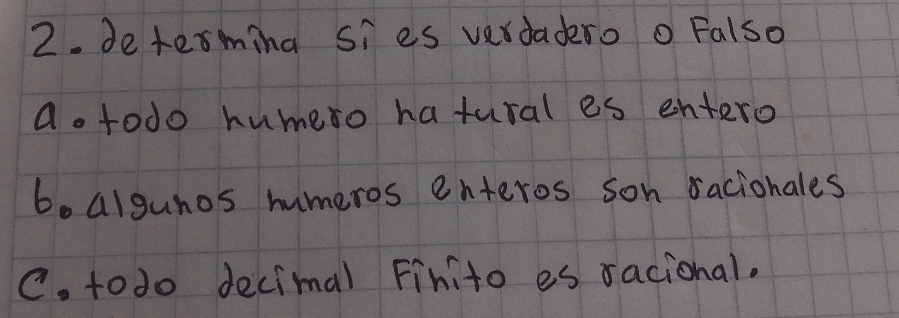 2. determina si es verdadero o Falso
a. todo numero natural es entero
b. algunos numeros enteros son racionales
c. todo decimal Finito es racional.